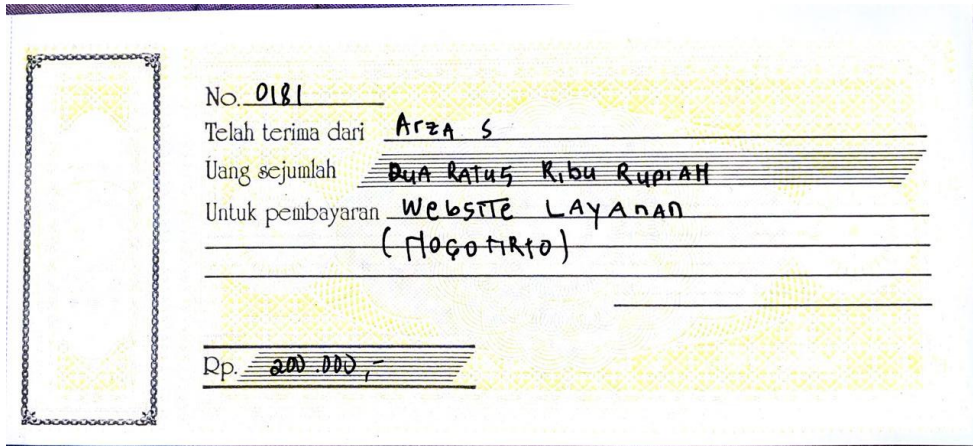 No. 0181
Telah terima dari Arza S
Uang sejumlah Dua Ratus Ribu Rupiah
Untuk pembayaran Website Layanan
(Nogotirto)
Rp. 200.000,-